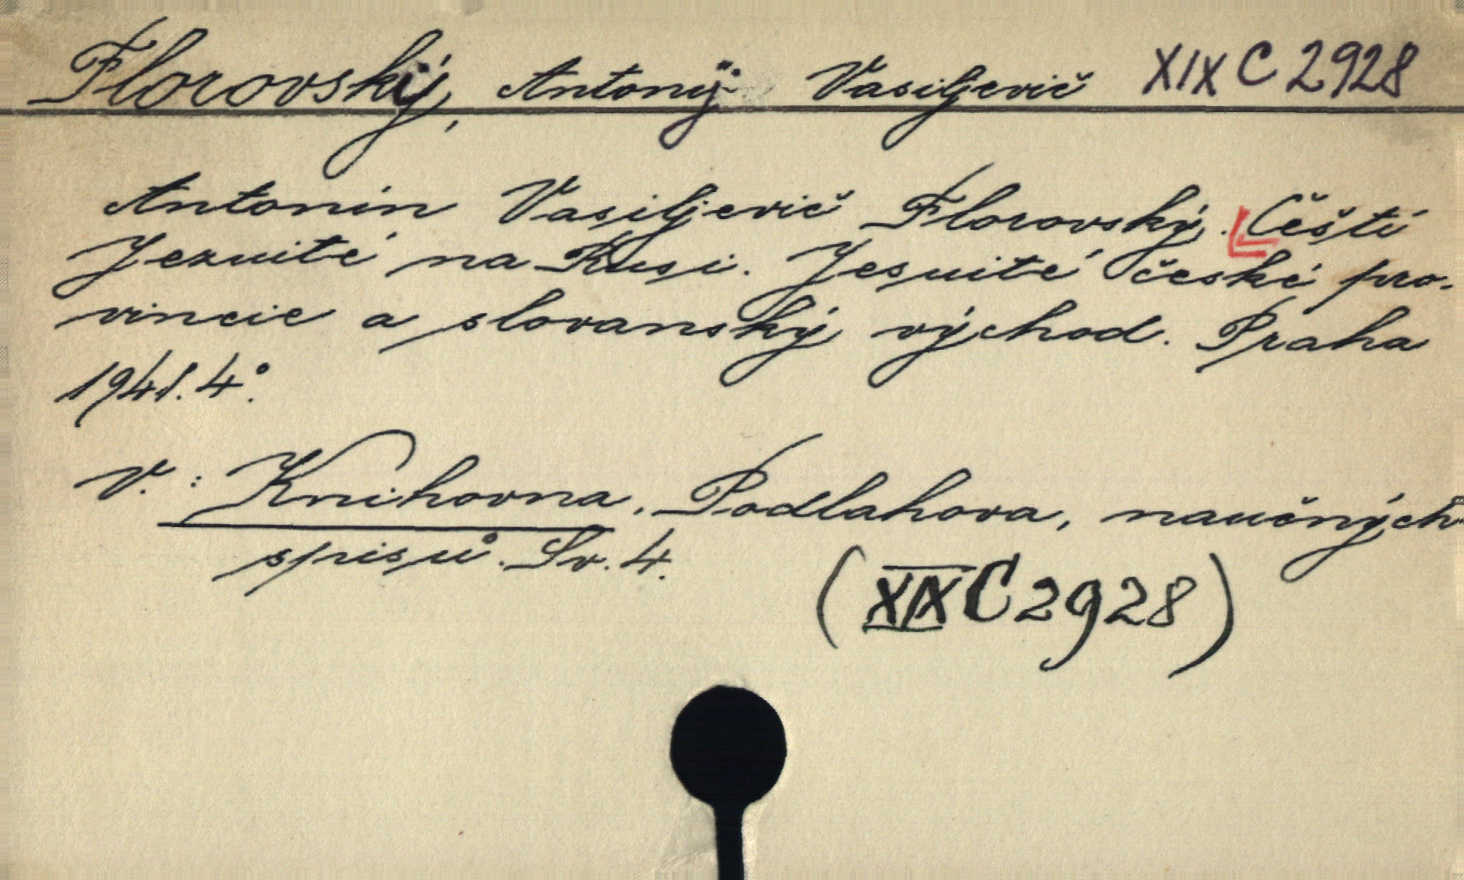 Florovskij, Antonij Vasiljevič XIX C 2928
Antonín Vasiljevič Florovský. Čeští
Jezuité na Rusi. Jesuité české pro-
vincie a slovanský východ. Praha
1941. 4°.
V. : Knihovna, Podlahova, naučných
spisů. Sv. 4.
(XIX C 2928)